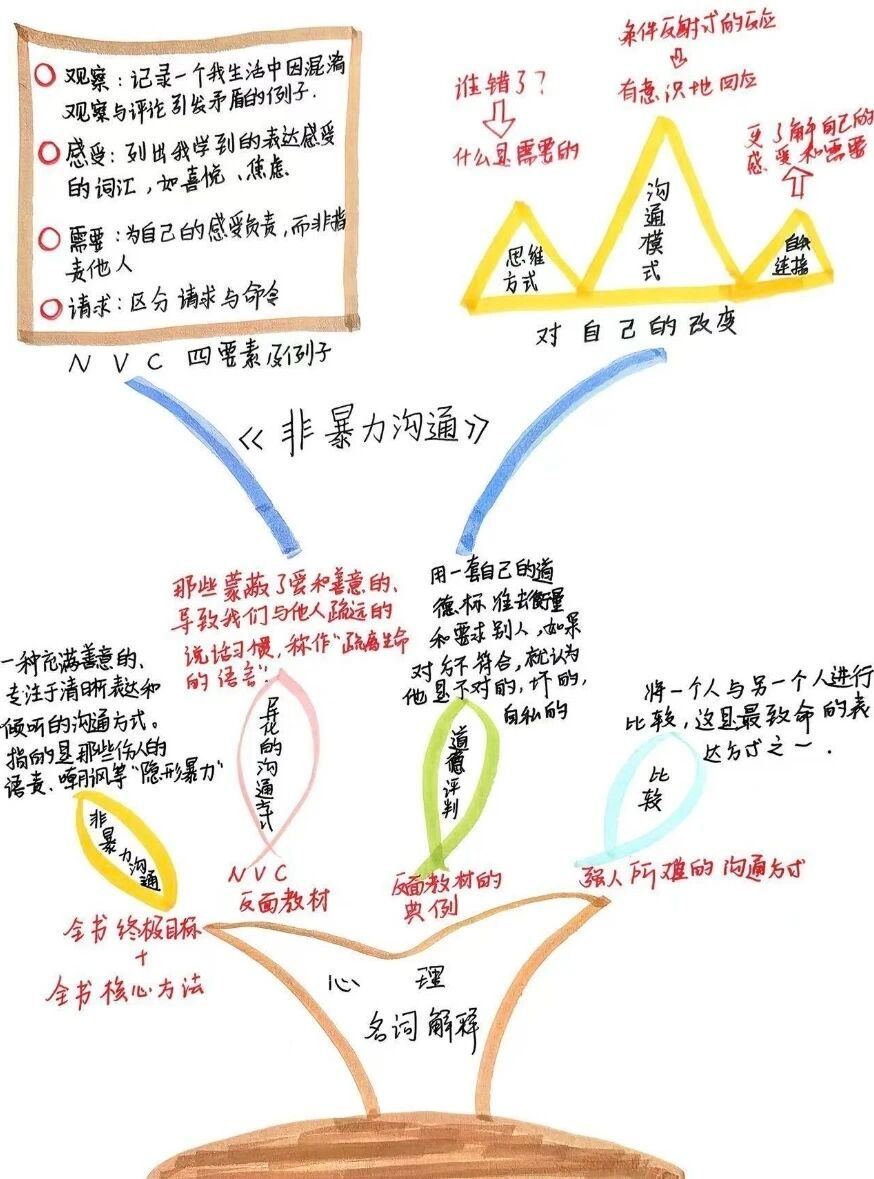 观察：记录一个我生活中因混淆
观察与评论引发矛盾的例子.
感受：列出我学到的表达感受
的词汇，如喜悦、焦虑
需要：为自己的感受负责，而非指
责他人
请求：区分请求与命令
NVC 四要素及例子
条件反射式的反应
有意识地回应
谁错了？
什么是需要的
更了解自己的
感受和需要
思维
方式
沟通模式
自我
连接
对自己的改变
《非暴力沟通》
那些蒙蔽了爱和善意的、
导致我们与他人疏远的
说话习惯，称作“疏离生命
的语言”.
用一套自己的道
德标准去衡量
和要求别人，如果
对方不符合，就认为
他是不对的，坏的，
自私的
一种充满善意的、
专注于清晰表达和
倾听的沟通方式。
指的是那些伤人的
语责、嘲讽等“隐形暴力”
将一个人与另一个人进行
比较，这是最致命的表
达方式之一.
非暴力沟通
异化的沟通方式
道德评判
比较
NVC
反面教材
反面教材的
典例
强人所难的沟通方式
全书终极目标
+
全书核心方法
心理
名词解释